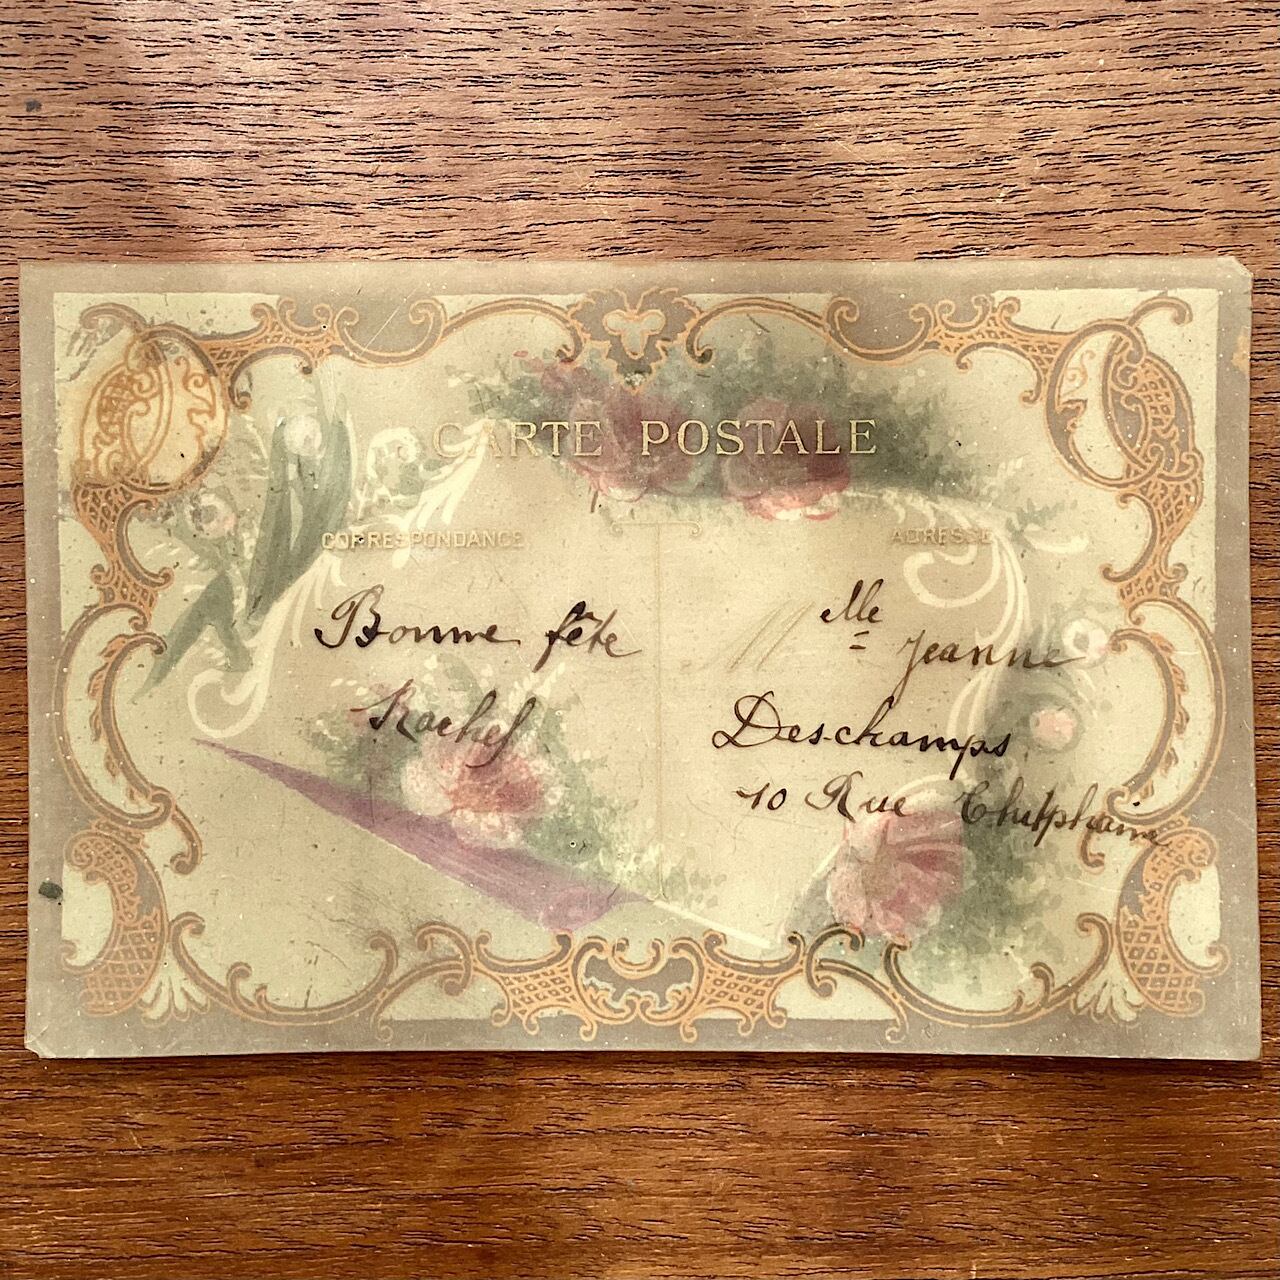 CARTE POSTALE
CORRESPONDANCE
ADRESSE
Bonne fête
Rachel
Mlle Jeanne
Deschamps
10 Rue